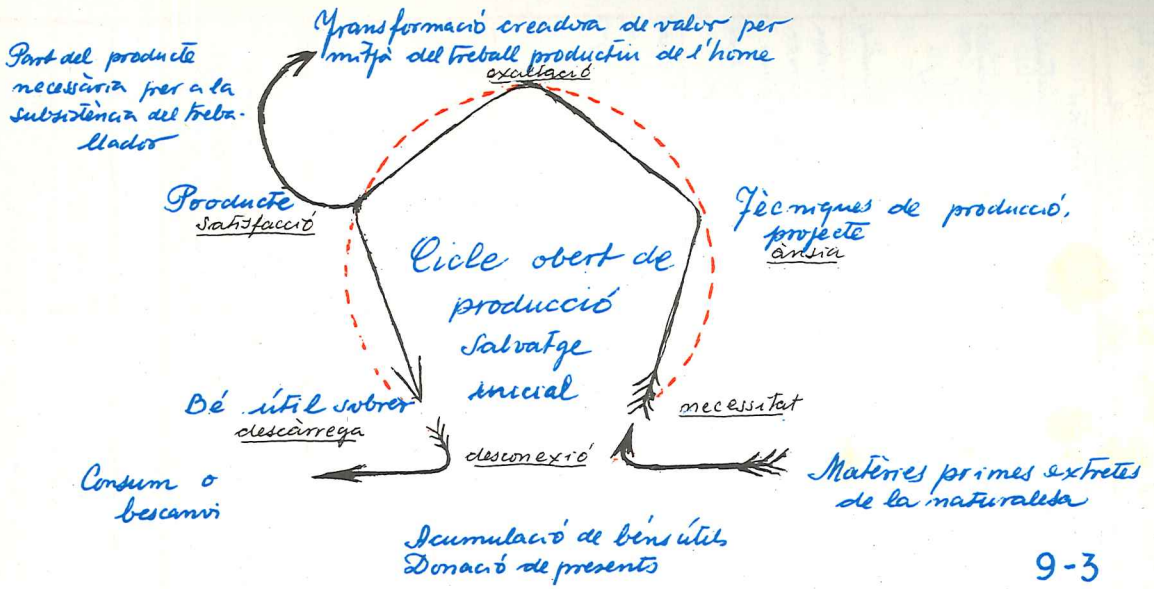 Transformació creadora de valor per
mitjà del treball productiu de l'home
exaltació
Part del producte
necessària per a la
subsistència del treba-
llador
Producte
satisfacció
Tècniques de producció,
projecte
ànsia
Cicle obert de
producció
salvatge
inicial
Bé útil sobrer
descàrrega
necessitat
desconexió
Consum o
bescanvi
Matèries primes extretes
de la naturalesa
Acumulació de béns útils
Donació de presents
9-3